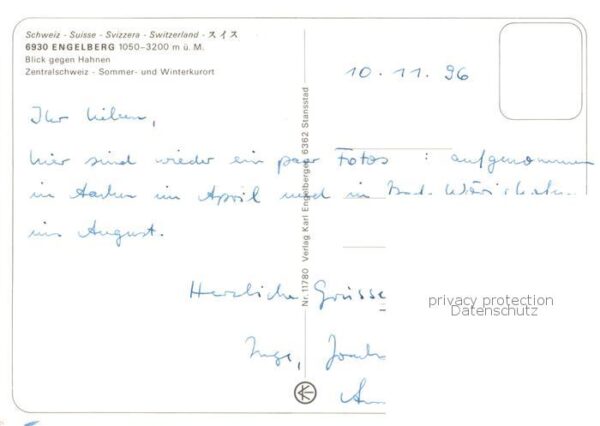 Schweiz - Suisse - Svizzera - Switzerland - スイス
6930 ENGELBERG 1050-3200 m ü. M.
Blick gegen Hahnen
Zentralschweiz - Sommer- und Winterkurort
10. 11. 96
Ihr Lieben,
hier sind wieder ein paar Fotos : aufgenommen
in Aachen im April und in Bad Wörishofen
im August.
Herzliche Grüsse
Inge,
Nr. 11780 Verlag Karl Engelberger, 6362 Stansstad
privacy protection
Datenschutz